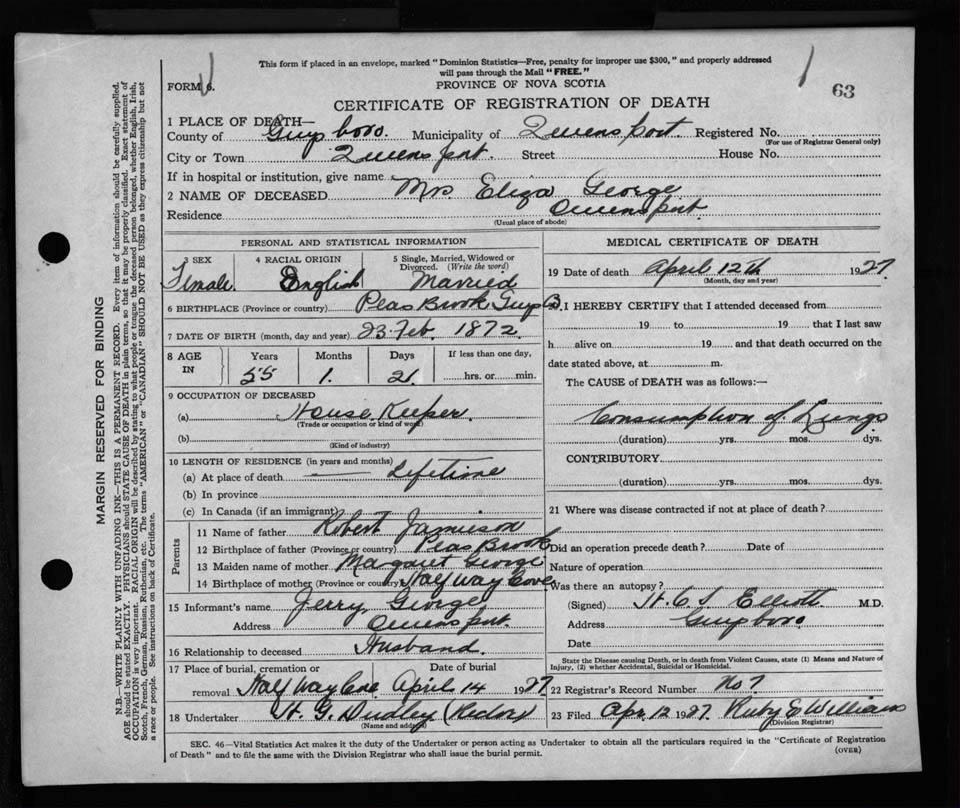 This form if placed in an envelope, marked "Dominion Statistics—Free, penalty for improper use $300," and properly addressed
will pass through the Mail "FREE."
FORM 6.
PROVINCE OF NOVA SCOTIA
63
CERTIFICATE OF REGISTRATION OF DEATH
1 PLACE OF DEATH—
County of Guysboro. Municipality of Queensport. Registered No.
(For use of Registrar General only)
City or Town Queensport. Street House No.
If in hospital or institution, give name
2 NAME OF DECEASED Mrs Eliza George
Residence Queensport.
(Usual place of abode)
PERSONAL AND STATISTICAL INFORMATION
3 SEX 4 RACIAL ORIGIN 5 Single, Married, Widowed or Divorced. (Write the word)
Female. English Married
6 BIRTHPLACE (Province or country) Peas Brook Guys
7 DATE OF BIRTH (month, day and year) 23 Feb. 1872.
8 AGE IN Years Months Days If less than one day,
55 1. 21 hrs. or min.
9 OCCUPATION OF DECEASED
(a) House Keeper
(Trade or occupation or kind of work)
(b)
(Kind of industry)
10 LENGTH OF RESIDENCE (in years and months)
(a) At place of death Lifetime
(b) In province
(c) In Canada (if an immigrant)
Parents
11 Name of father Robert Jamieson
12 Birthplace of father (Province or country) Peas Brook
13 Maiden name of mother Margaret George
14 Birthplace of mother (Province or country) Half Way Cove
15 Informant's name Jerry George
Address Queensport.
16 Relationship to deceased Husband.
17 Place of burial, cremation or removal Half Way Cove Date of burial April 14 1927
18 Undertaker H. G. Dudley
(Name and address)
MEDICAL CERTIFICATE OF DEATH
19 Date of death April 12th 1927.
(Month, day and year)
I HEREBY CERTIFY that I attended deceased from
19 to 19 that I last saw
h alive on 19 and that death occurred on the
date stated above, at m.
The CAUSE of DEATH was as follows:—
Consumption of Lungs
(duration) yrs. mos. dys.
CONTRIBUTORY
(duration) yrs. mos. dys.
21 Where was disease contracted if not at place of death?
Did an operation precede death? Date of
Nature of operation
Was there an autopsy?
(Signed) Elliott M.D.
Address Guysboro
Date
State the Disease causing Death, or in death from Violent Causes, state (1) Means and Nature of
Injury, (2) whether Accidental, Suicidal or Homicidal.
22 Registrar's Record Number No 7
23 Filed Apr. 12 1927. Ruby E Williams
(Division Registrar)
SEC. 46—Vital Statistics Act makes it the duty of the Undertaker or person acting as Undertaker to obtain all the particulars required in the "Certificate of Registration
of Death" and to file the same with the Division Registrar who shall issue the burial permit.
(OVER)
MARGIN RESERVED FOR BINDING
N.B.—WRITE PLAINLY WITH UNFADING INK—THIS IS A PERMANENT RECORD. Every item of information should be carefully supplied.
AGE should be stated EXACTLY. PHYSICIANS should STATE CAUSE OF DEATH in plain terms, so that it may be properly classified. Exact statement of
OCCUPATION is very important. RACIAL ORIGIN will be described by stating to what people or tongue the deceased person belonged, whether English, Irish,
Scotch, French, German, Russian, Ruthenian, etc. The terms "AMERICAN" or "CANADIAN" SHOULD NOT BE USED as they express citizenship but not
a race or people. See instructions on back of Certificate.